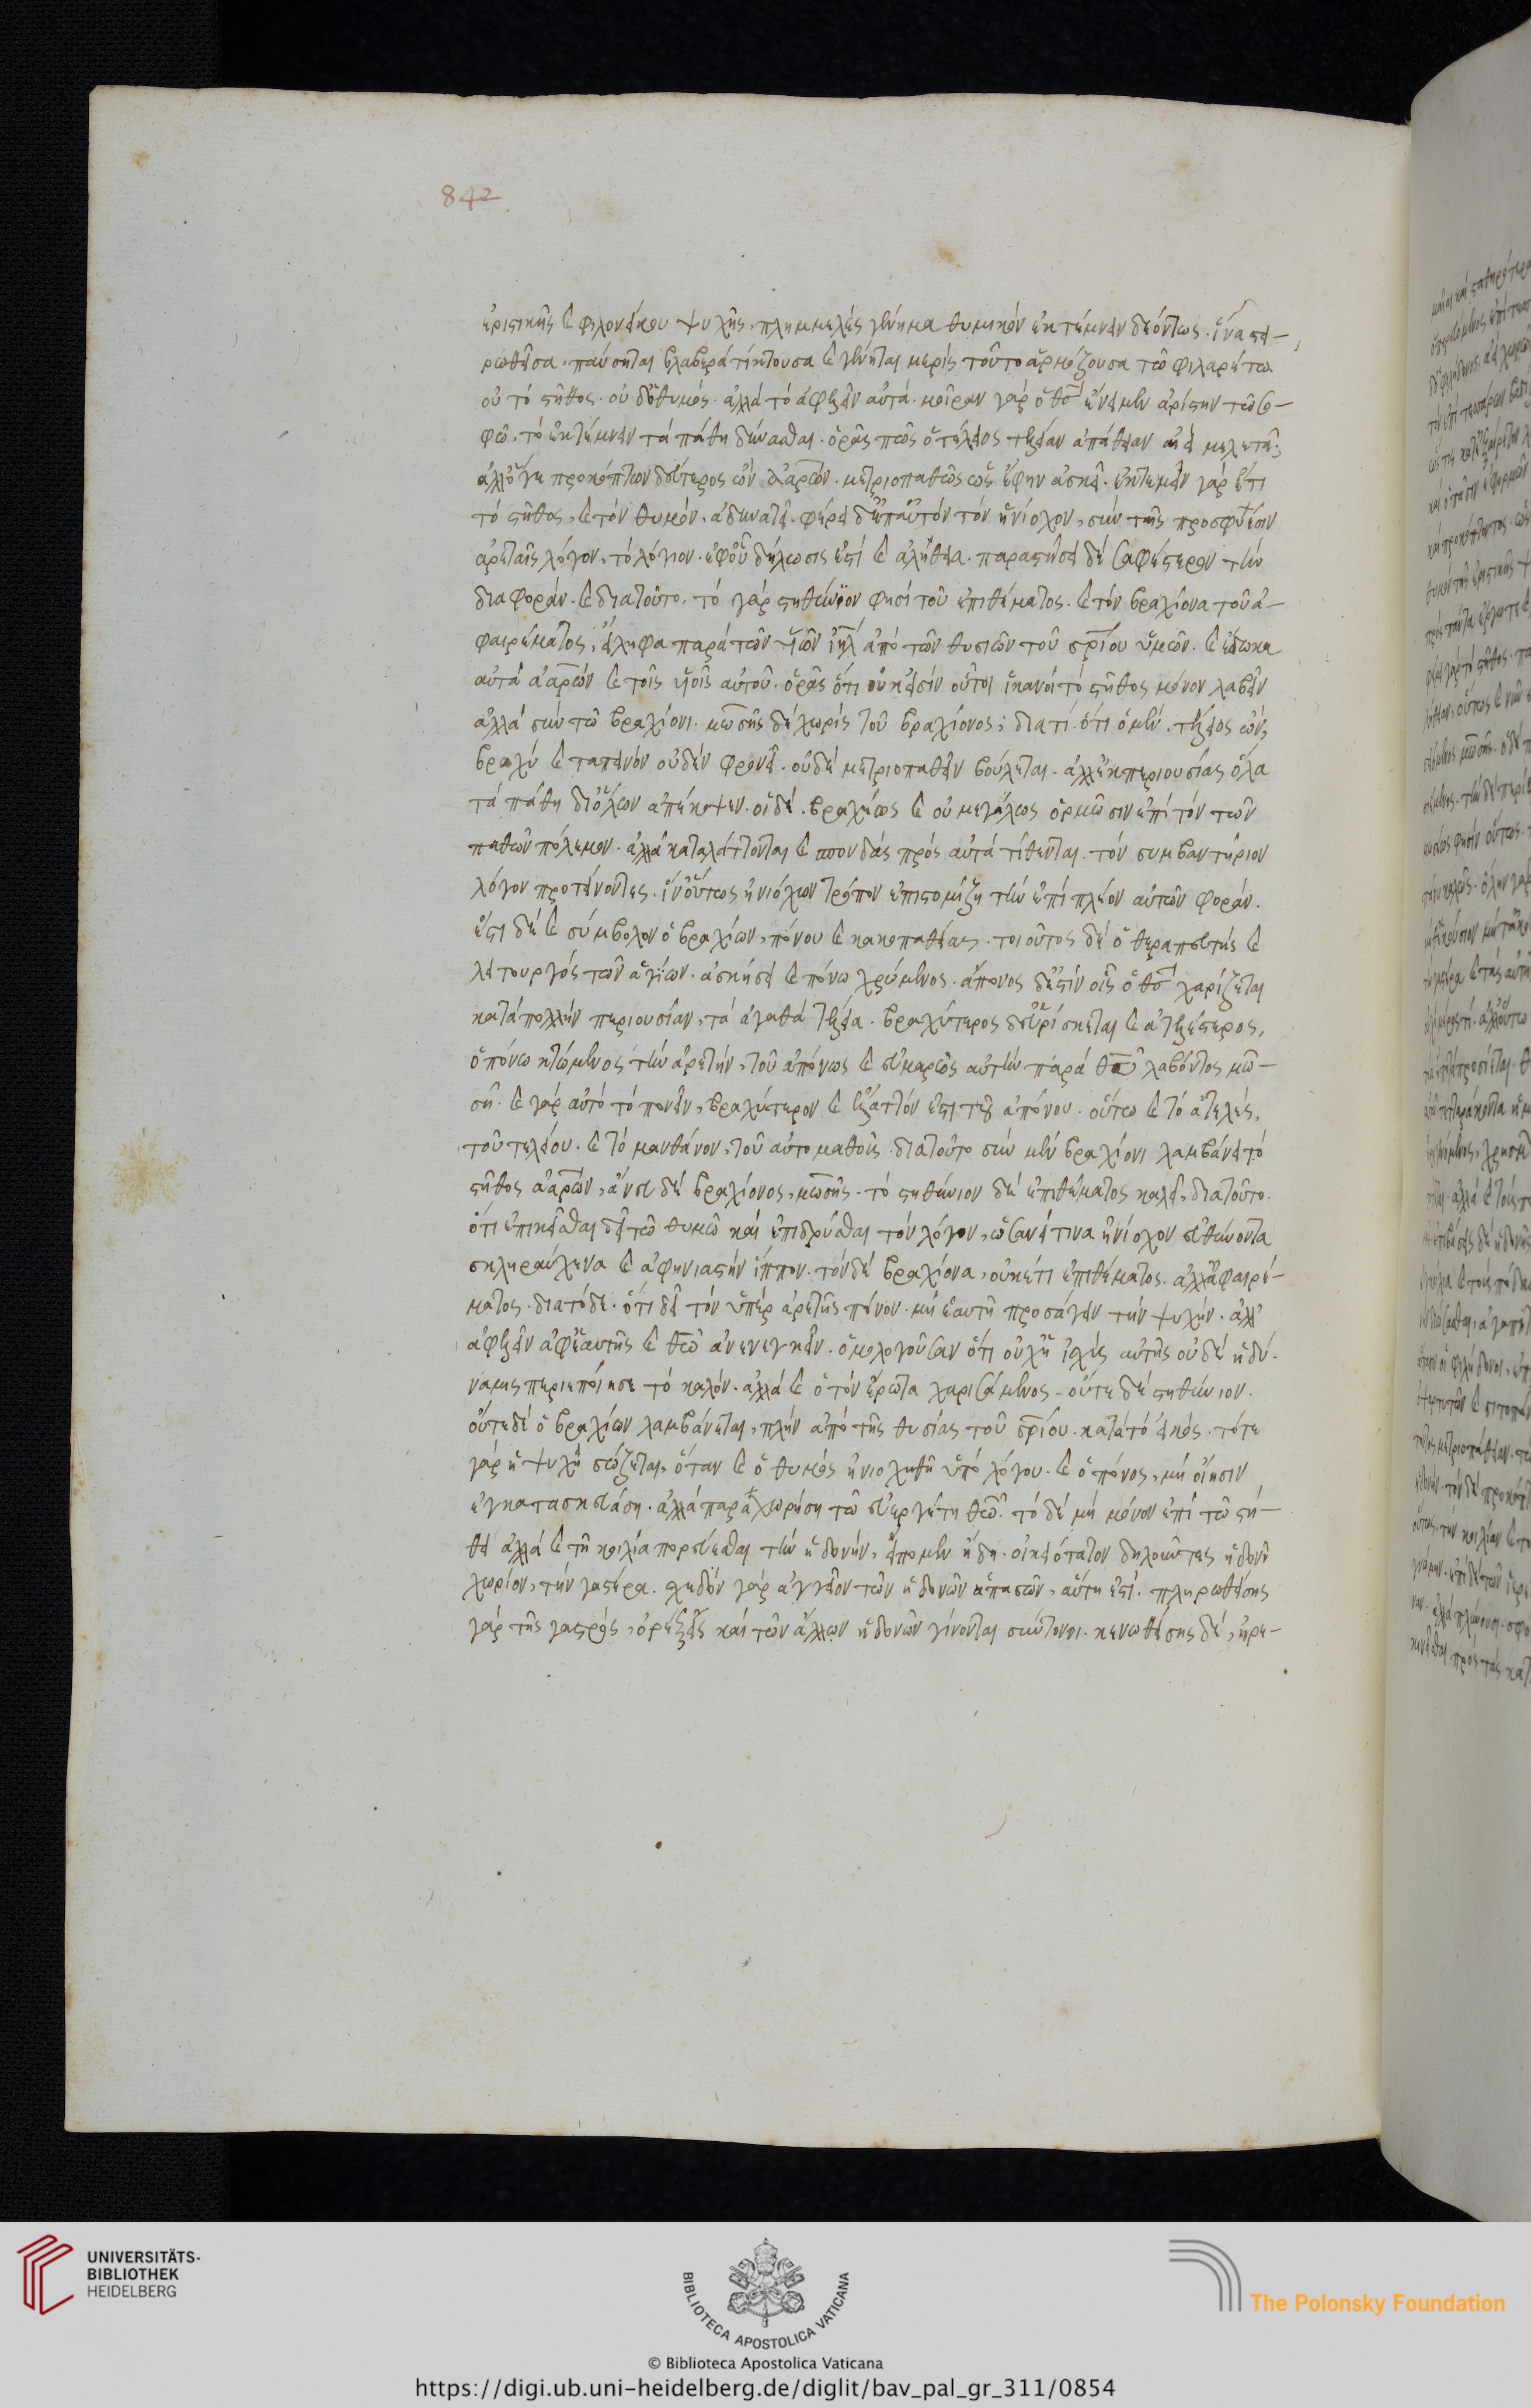 842
ἐριστικῆς καὶ φιλονείκου ψυχῆς, πλημμελὲς γέννημα θυμικὸν ἐκτέμνειν δεόντως. ἵνα στει-
ρωθεῖσα, παύσηται βλαβερὰ τίκτουσα καὶ γένηται μερὶς τοῦτο ἁρμόζουσα τῶ φιλαρέτω
οὐ τὸ στῆθος. οὐ δ' ὁ θυμός. ἀλλὰ τὸ ἀφελεῖν αὐτά. μοῖραν γὰρ ὁ θς̅ ἔνειμεν ἀρίστην τῶ σο-
φῶ, τὸ ἐκτέμνειν τὰ πάθη δύνασθαι. ὁρᾶς πῶς ὁ τέλειος τελείαν ἀπάθειαν αἰεὶ μελετᾶ;
ἀλλ' ὅγε προκόπτων δεύτερος ὢν ἀαρών. μετριοπαθῶς ὡς ἔφην ἀσκεῖ. ἐκτεμεῖν γὰρ ἔτι
τὸ στῆθος, καὶ τὸν θυμὸν, ἀδυνατεῖ. φέρει δ' ἐπ' αὐτὸν τὸν ἡνίοχον, σὺν ταῖς προσφυέσιν
ἀρεταῖς λόγον, τὸ λόγιον. ἐφ' οὗ δήλωσίς ἐστι καὶ ἀλήθεια. παραστήσει δὲ σαφέστερον τὴν
διαφορὰν. καὶ διατοῦτο. τὸ γὰρ στηθύνιον φησὶ τοῦ ἐπιθέματος. καὶ τὸν βραχίονα τοῦ ἀ-
φαιρέματος, εἴληφα παρὰ τῶν υἱῶν ἰηλ̅ ἀπὸ τῶν θυσιῶν τοῦ σωτηρίου ὑμῶν. καὶ ἔδωκα
αὐτὰ ἀαρὼν καὶ τοῖς υἱοῖς αὐτοῦ. ὁρᾶς ὅτι οὐκ εἰσὶν οὗτοι ἱκανοὶ τὸ στῆθος μόνον λαβεῖν
ἀλλὰ σὺν τῶ βραχίονι. μωσῆς δὲ χωρὶς τοῦ βραχίονος; διατί. ὅτι ὁ μὲν. τέλειος ὢν,
βραχὺ καὶ ταπεινὸν οὐδὲν φρονεῖ. οὐδὲ μετριοπαθεῖν βούλεται. ἀλλ' ἐκ περιουσίας ὅλα
τὰ πάθη δι' ὅλων ἀπέκοψεν. οἱ δὲ. βραχέως καὶ οὐ μεγάλως ὁρμῶσιν ἐπὶ τὸν τῶν
παθῶν πόλεμον. ἀλλὰ καταλάττονται καὶ σπονδὰς πρὸς αὐτὰ τίθενται. τὸν συμβαντήριον
λόγον προτείνοντες. ἵν' οὕτως ἡνιόχου τρόπον ἐπιστομίζη τὴν ἐπὶ πλέον αὐτῶν φοράν.
ἔστι δὲ καὶ σύμβολον ὁ βραχίων, πόνου καὶ κακοπαθείας. τοιοῦτος δὲ ὁ θεραπευτὴς καὶ
λειτουργὸς τῶν ἁγίων. ἀσκήσει καὶ πόνω χρώμενος. ἄπονος δ' ἐστὶν οἷς ὁ θς̅ χαρίζεται
κατὰ πολλὴν περιουσίαν, τὰ ἀγαθὰ τέλεια. βραχύτερος δ' εὑρίσκεται καὶ ἀτελέστερος,
ὁ πόνω κτώμενος τὴν ἀρετήν, τοῦ ἀπόνως καὶ εὐμαρῶς αὐτὴν παρὰ θυ̅ λαβόντος μω-
σῆ. καὶ γὰρ αὐτὸ τὸ πονεῖν, βραχύτερον καὶ ἔλαττόν ἐστι τοῦ ἀπόνου. οὕτω καὶ τὸ ἀτελὲς,
τοῦ τελείου. καὶ τὸ μανθάνον, τοῦ αὐτομαθοῦς. διατοῦτο σὺν μὲν βραχίονι λαμβάνει τὸ
στῆθος ἀαρών, ἄνευ δὲ βραχίονος, μωσῆς. τὸ στηθύνιον δὲ ἐπιθέματος καλεῖ, διατοῦτο.
ὅτι ἐπικεῖσθαι δεῖ τῶ θυμῶ καὶ ἐπιδρύσθαι τὸν λόγον, ὡσανεί τινα ἡνίοχον εὐθύνοντα
σκληραύχενα καὶ ἀφηνιαστὴν ἵππον. τὸν δὲ βραχίονα, οὐκέτι ἐπιθέματος. ἀλλ' ἀφαιρέ-
ματος. διατόδε. ὅτι δεῖ τὸν ὑπὲρ ἀρετῆς πόνον. μὴ ἑαυτῆ προσάγειν τὴν ψυχήν. ἀλλ'
ἀφελεῖν ἀφ' ἑαυτῆς καὶ θῶ̅ ἀνενεγκεῖν. ὁμολογοῦσαν ὅτι οὐχ ἡ ἰσχὺς αὐτῆς οὐδὲ ἡ δύ-
ναμις περιεποίησε τὸ καλόν. ἀλλὰ καὶ ὁ τὸν ἔρωτα χαρισάμενος. οὔτε δὲ στηθύνιον.
οὔτε δὲ ὁ βραχίων λαμβάνεται, πλὴν ἀπὸ τῆς θυσίας τοῦ σωτηρίου. κατὰ τὸ εἰκός. τότε
γὰρ ἡ ψυχὴ σώζεται, ὅταν καὶ ὁ θυμὸς ἡνιοχηθῆ ὑπὸ λόγου. καὶ ὁ πόνος, μὴ οἴησιν
ἐγκατασκευάση. ἀλλὰ παραχωρήση τῶ εὐεργέτη θῶ̅. τὸ δὲ μὴ μόνον ἐπὶ τῶ στή-
θει ἀλλὰ καὶ τῆ κοιλία πορεύεσθαι τὴν ἡδονήν, εἴπομεν ἤδη. οἰκειότατον δηλοῦντες ἡδονῆ
χωρίον, τὴν γαστέρα. σχεδὸν γὰρ ἀγγεῖον τῶν ἡδονῶν ἁπασῶν, αὕτη ἐστί. πληρωθείσης
γὰρ τῆς γαστρός, ὀρέξεις καὶ τῶν ἄλλων ἡδονῶν γίνονται σύντονοι. κενωθείσης δέ, ἠρε-
UNIVERSITÄTS-
BIBLIOTHEK
HEIDELBERG
BIBLIOTECA APOSTOLICA VATICANA
The Polonsky Foundation
© Biblioteca Apostolica Vaticana
https://digi.ub.uni-heidelberg.de/diglit/bav_pal_gr_311/0854